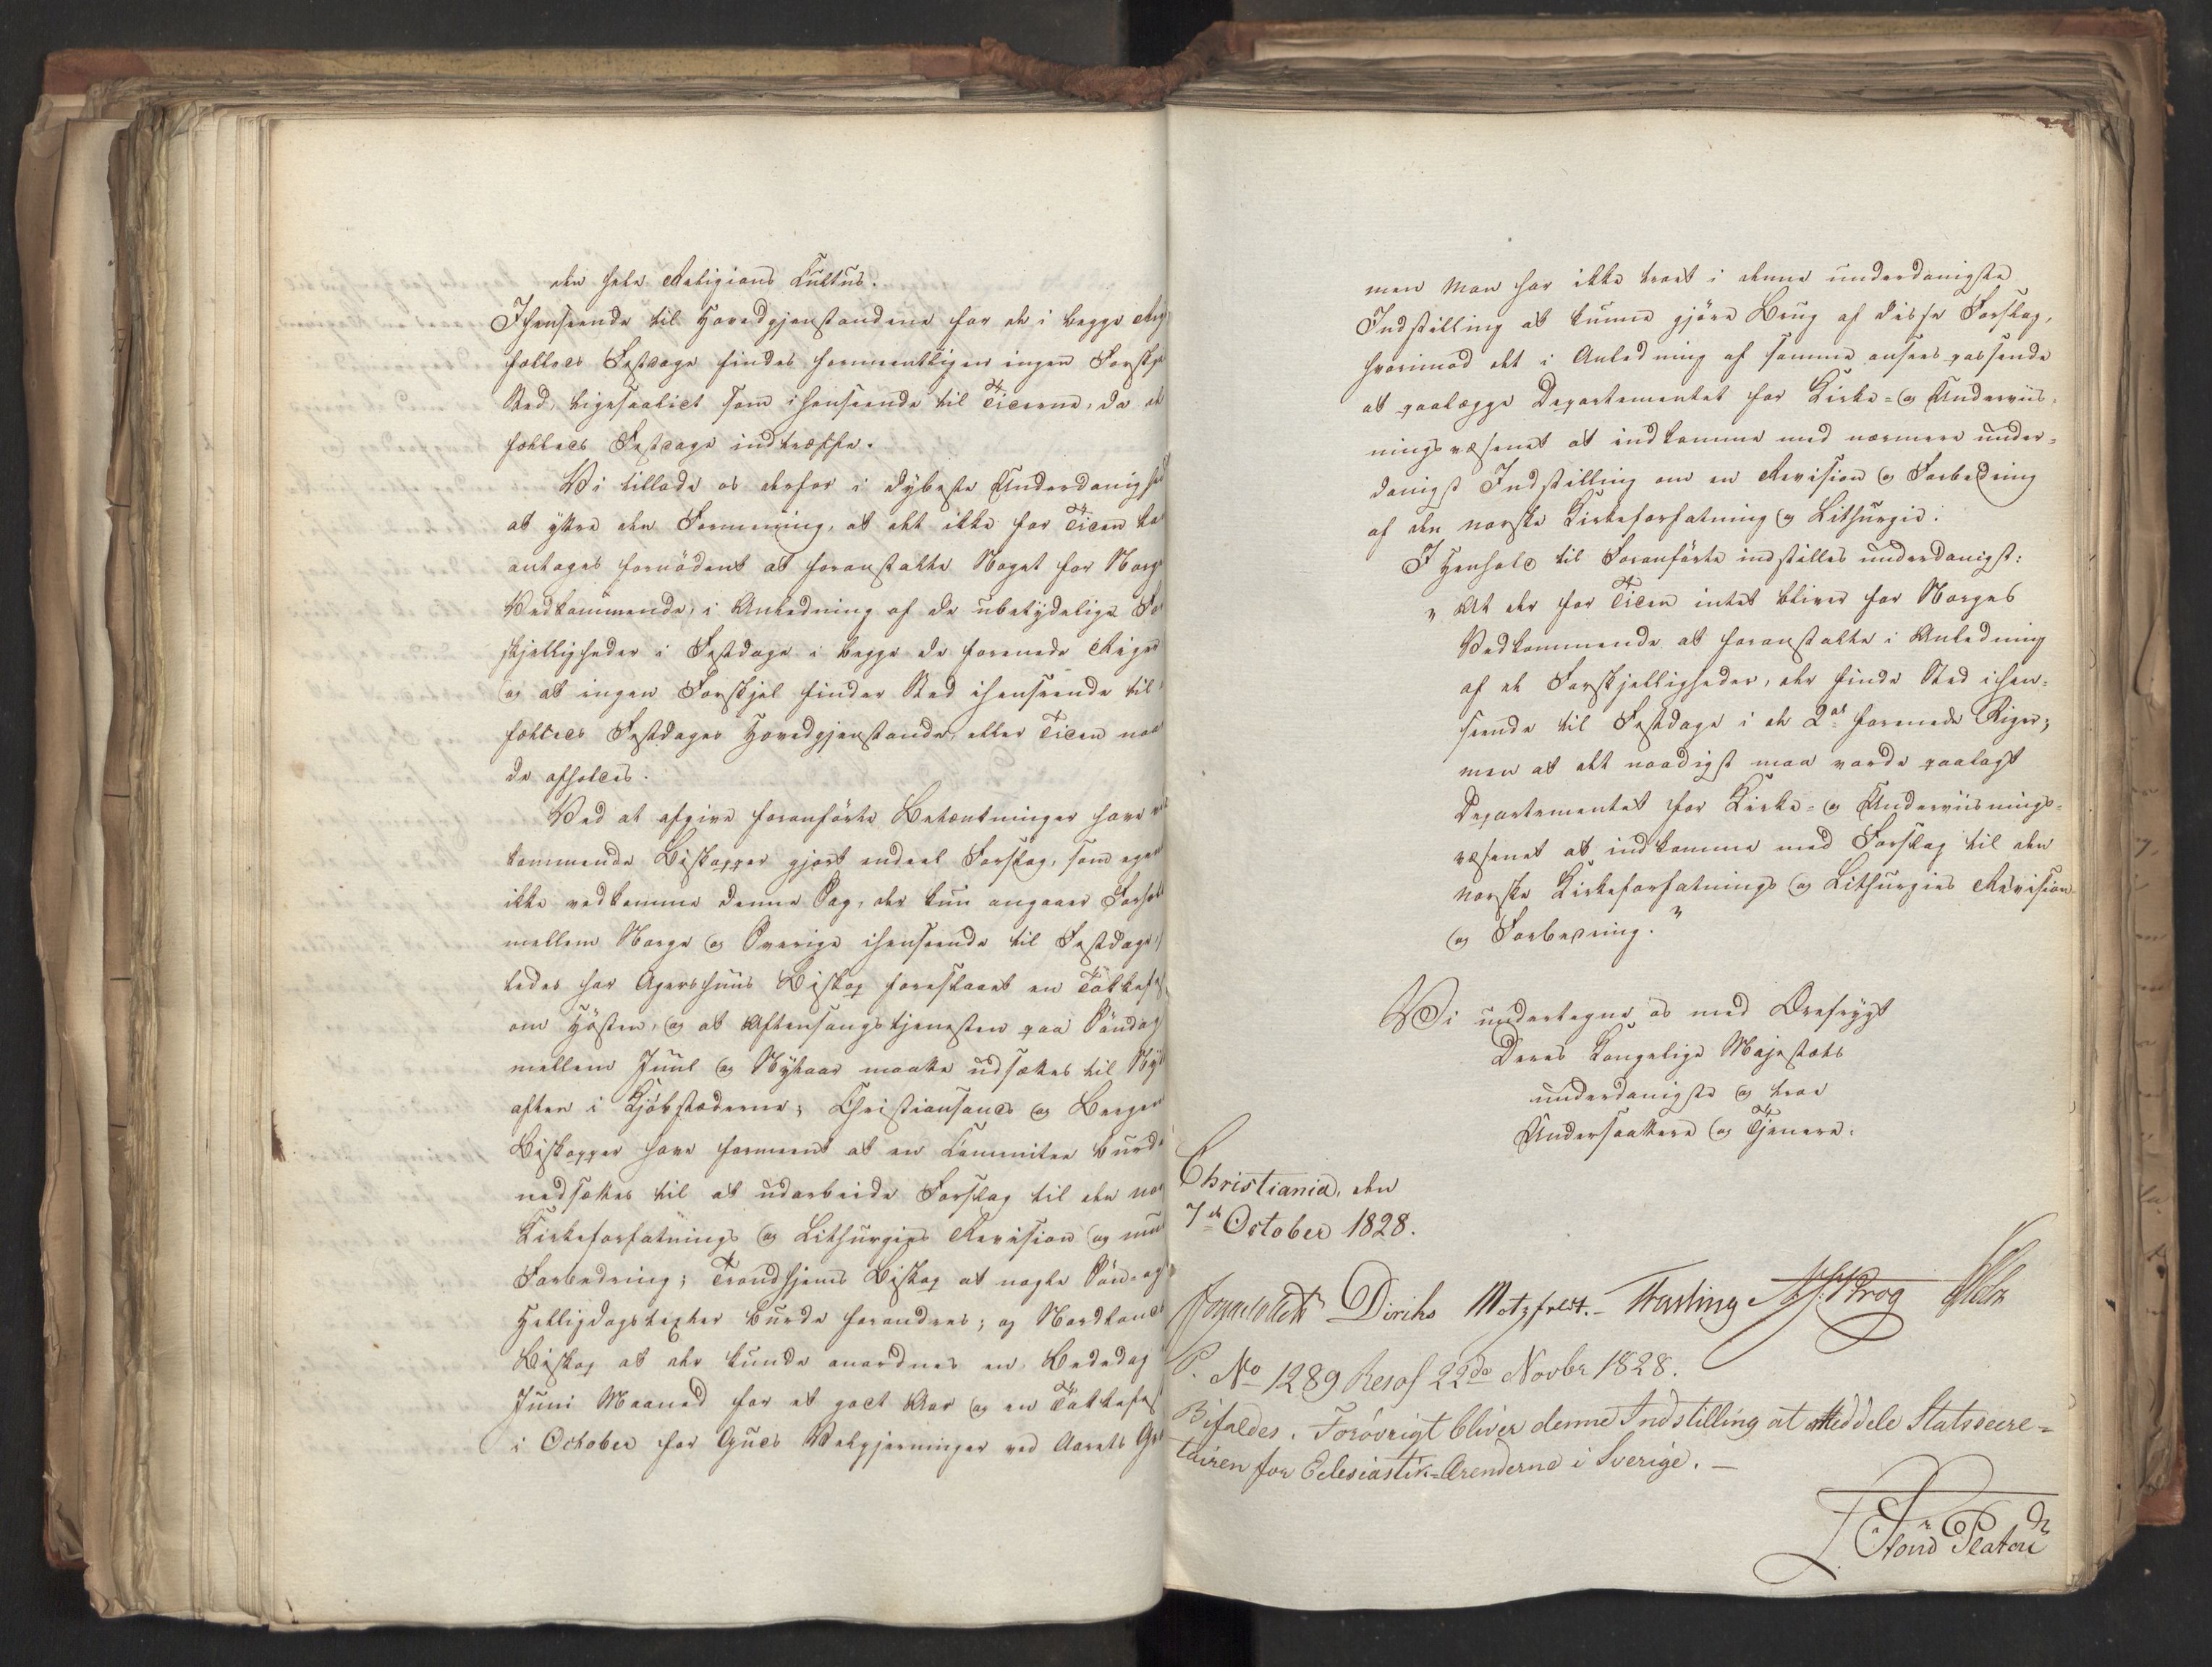 den hele Religions Cultus.
Ihenseende til Hovedgjenstandene for de i begge Rig
fælleds Festdage findes formeentligen ingen Forskje
Sted, ligesaalidt som ihenseende til Tiderne, da de
fælleds Festdage indtræffe.
Vi tillade os derfor i dybeste Underdanighed
at yttre den Formening, at det ikke for Tiden ka
antages fornödent at foranstalte Noget for Norge
Vedkommende, i Anledning af de ubetydelige For
skjelligheder i Festdage i begge de forenede Riger
og at ingen Forskjel finder Sted ihenseende til
fælleds Festdages Hovedgjenstande, eller Tiden naar
de afholdes.
Ved at afgive foranförte Betænkninger have ved
kommende Biskopper gjort endeel Forslag, som egent
ikke vedkomme denne Sag, der kun angaaer Forhold
mellem Norge og Sverige ihenseende til Festdage,
ledes har Agershuus Biskop foreslaaet en Takkefest
om Hösten, og at Aftensangstjenesten paa Söndag
mellem Juul og Nytaar maatte udsættes til Nyt
aften i Kjöbstæderne; Christiansands og Bergens
Biskopper have formeent at en Committee burde
nedsættes til at udarbeide Forslag til den nor
Kirkeforfatnings og Lithurgies Revision og mu
Forbedring; Trondhjems Biskop at nogle Sön- og
Helligdagstexter burde forandres; og Nordlands
Biskop at der kunde anordnes en Bededag
Juni Maaned for et godt Aar og en Takkefest
i October for Guds Velgjerninger ved Aarets Gr
men man har ikke troet i denne underdanigste
Indstilling at kunne gjöre Brug af disse Forslag,
hvorimod det i Anledning af samme ansees passende
at paalægge Departementet for Kirke- og Underviis-
ningsvæsenet at indkomme med nærmere under-
danigst Indstilling om en Revision og Forbedring
af den norske Kirkeforfatning og Lithurgie.
I Henhold til Foranförte indstilles underdanigst:
" At der for Tiden intet bliver for Norges
Vedkommende at foranstalte i Anledning
af de Forskjelligheder, der finde Sted ihen-
seende til Festdage i de 2de forenede Riger;
men at det naadigst maa vorde paalagt
Departementet for Kirke- og Underviisnings-
væsenet at indkomme med Forslag til den
norske Kirkeforfatnings og Lithurgies Revision
og Forbedring."
Vi undertegne os med Ærefrygt
Deres Kongelige Majestæts
underdanigste og troe
Undersaattere og Tjenere.
Christiania, den
7de October 1828.
Diriks Motzfeldt. Fasting Krog Holst
P. No 1289 Resol 22de Novbr 1828.
Bifaldes. Forövrigt bliver denne Indstilling at meddele Statssecre-
tairen for Eclesiastik-Ærenderne i Sverige. –
Platou